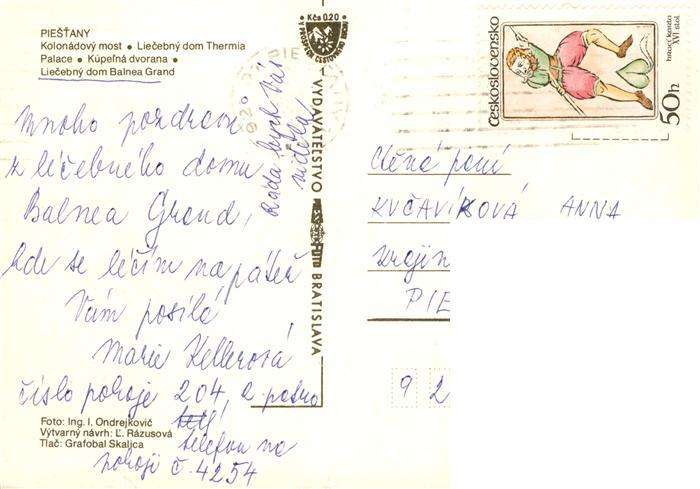 PIEŠŤANY
Kolonádový most • Liečebný dom Thermia
Palace • Kúpeľná dvorana •
Liečebný dom Balnea Grand
Mnoho pozdravů
z léčebného domu
Balnea Grand,
kde se léčím na páteř
Vám posílá
Marie Kellerová
číslo pokoje 204, 2. patro
telefon na
pokoji č. 4254
Ráda bych Vás
viděla!
Foto: Ing. I. Ondrejkovič
Výtvarný návrh: Ľ. Rázusová
Tlač: Grafobal Skalica
Kčs 0.20
VYDAVATEĽSTVO
BRATISLAVA
Československo
hrající kejklíř
XVI stol.
50h
Ctěná paní
KUČAVÍKOVÁ ANNA
PIE
9 2